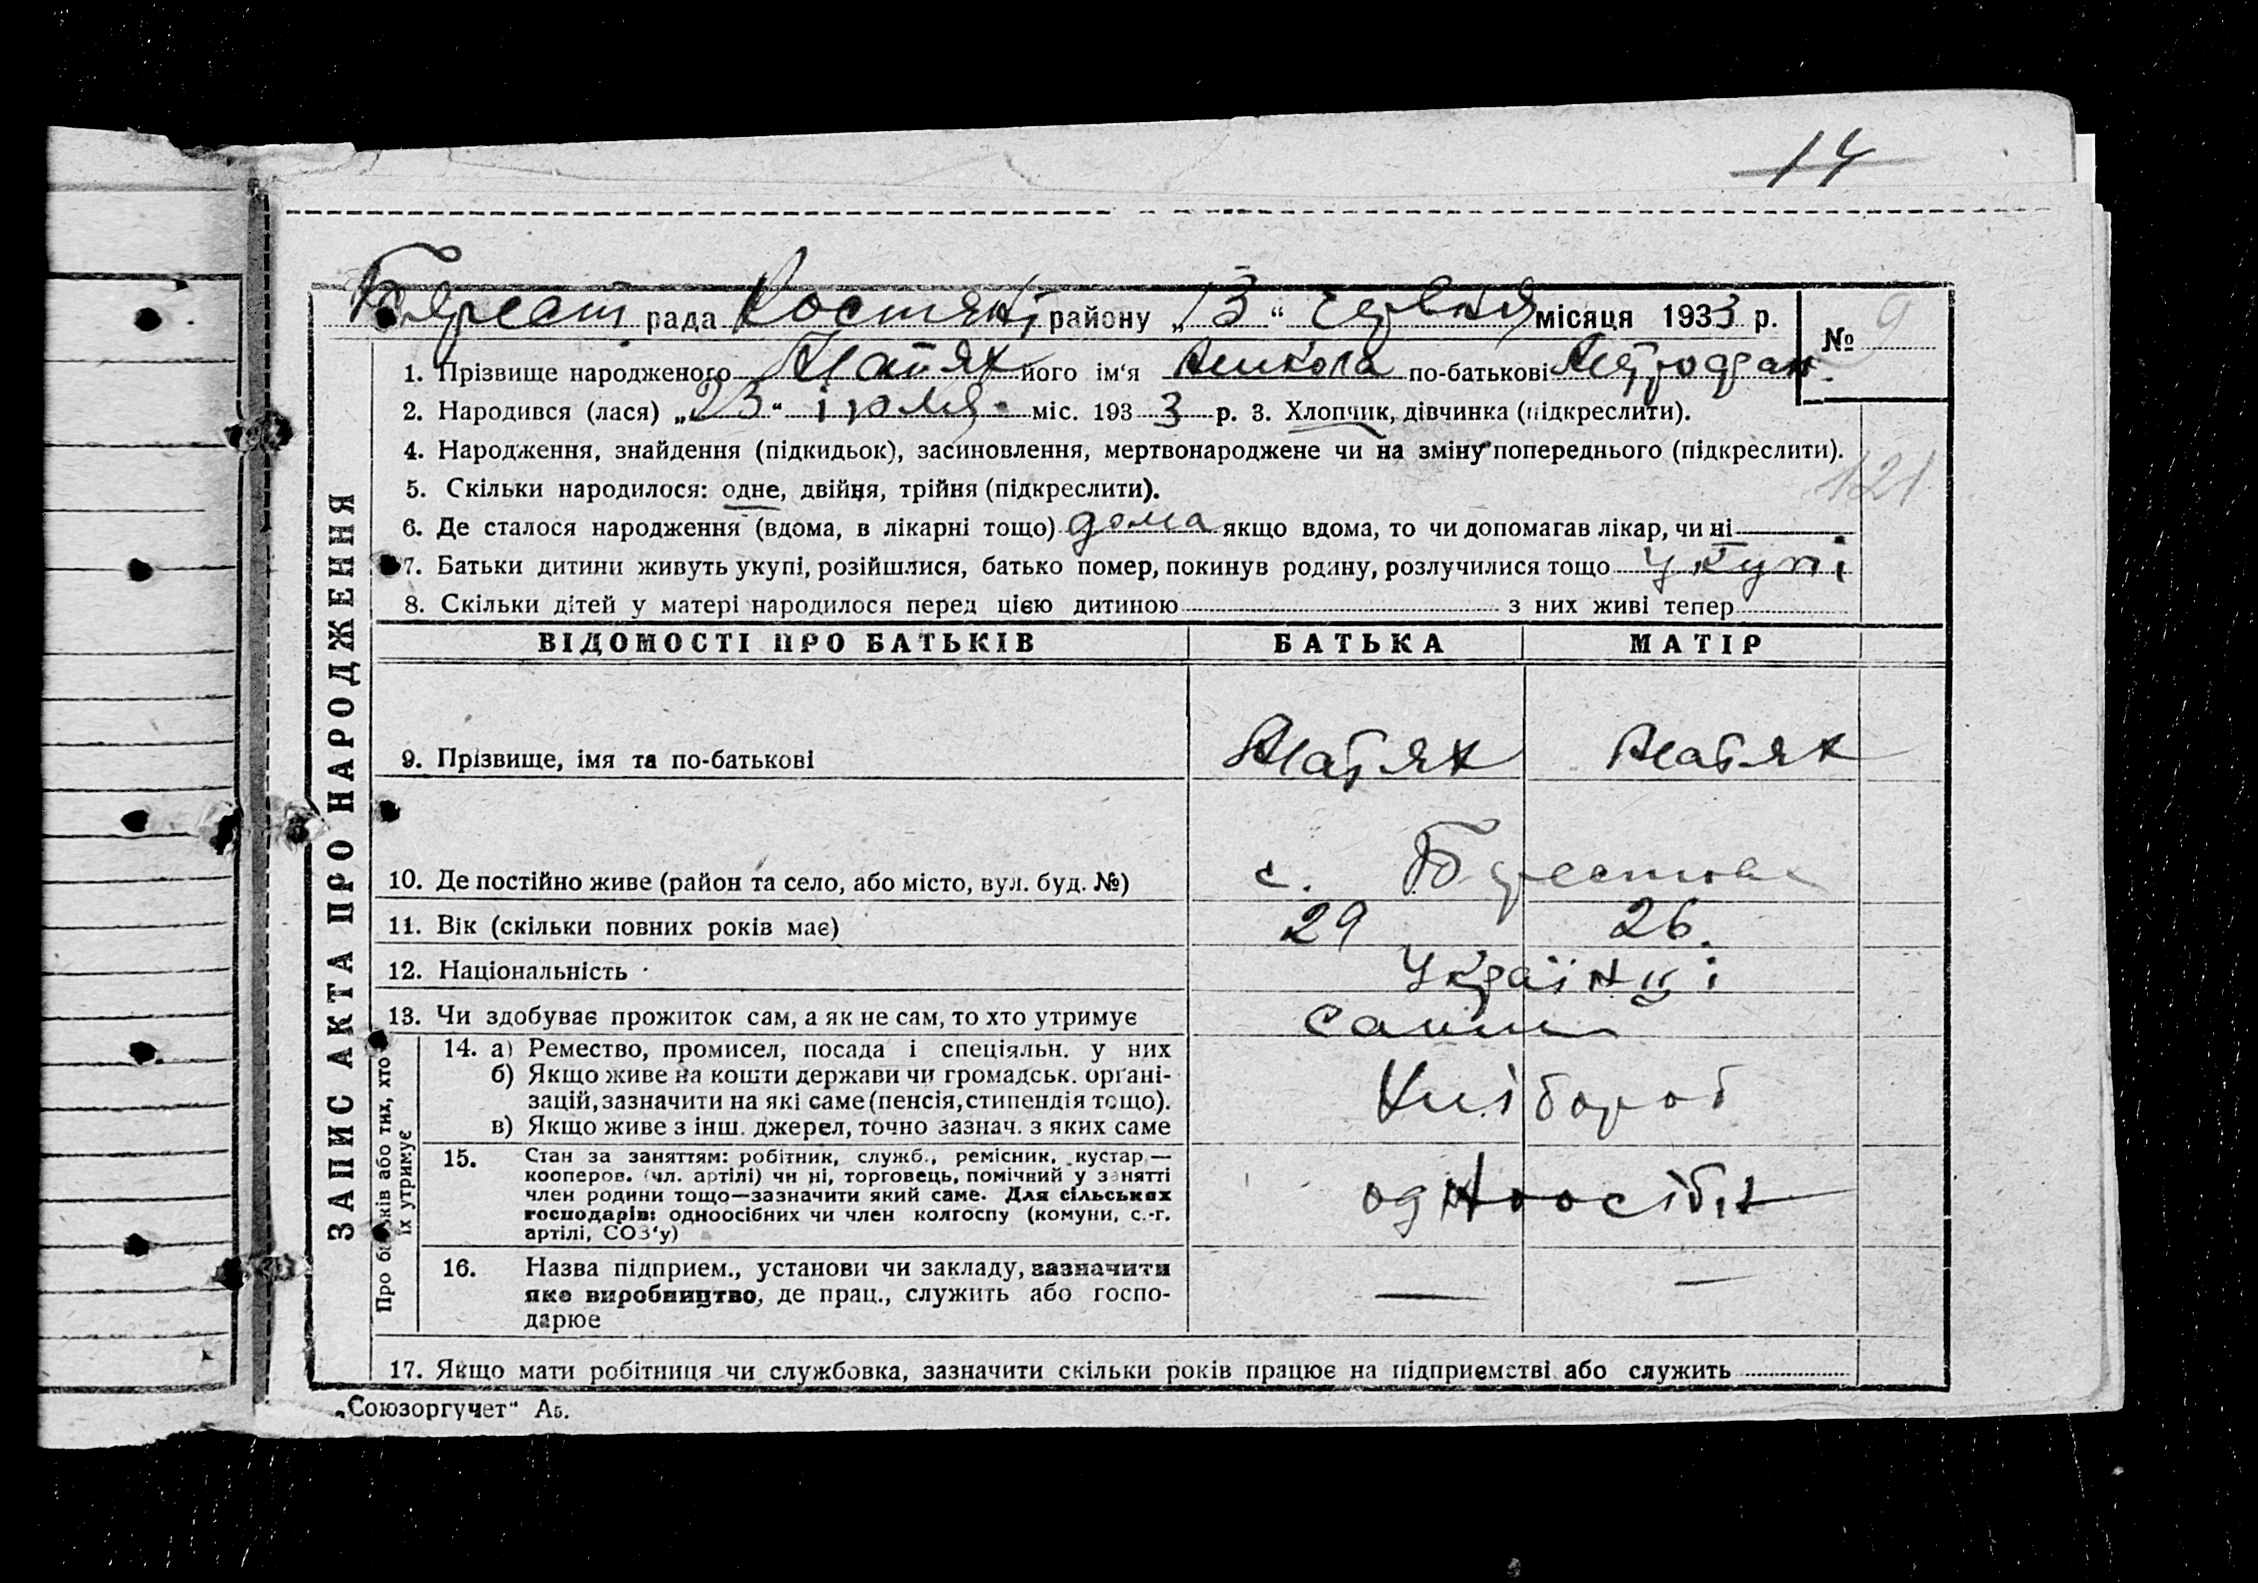 14
Берест рада Костян, району „13“ червня місяця 1933 р.
№ 9
1. Прізвище народженого Матях його ім‘я Микола по-батькові Митрофан.
2. Народився (лася) „23“ іюля міс. 1933 р. 3. Хлопчик, дівчинка (підкреслити).
4. Народження, знайдення (підкидьок), засиновлення, мертвонароджене чи на зміну попереднього (підкреслити).
121
5. Скільки народилося: одне, двійня, трійня (підкреслити).
6. Де сталося народження (вдома, в лікарні тощо) дома якщо вдома, то чи допомагав лікар, чи ні
7. Батьки дитини живуть укупі, розійшлися, батько помер, покинув родину, розлучилися тощо укупі
8. Скільки дітей у матері народилося перед цією дитиною з них живі тепер
ЗАПИС АКТА ПРО НАРОДЖЕННЯ
ВІДОМОСТІ ПРО БАТЬКІВ БАТЬКА МАТІР
9. Прізвище, імя та по-батькові Матях Матях
10. Де постійно живе (район та село, або місто, вул. буд. №) с. Берестове
11. Вік (скільки повних років має) 29 26.
12. Національність Українці
13. Чи здобуває прожиток сам, а як не сам, то хто утримує сами
Про батьків або тих, хто
їх утримує
14. а) Ремество, промисел, посада і спеціяльн. у них
б) Якщо живе на кошти держави чи громадськ. органі-
зацій, зазначити на які саме (пенсія, стипендія тощо).
в) Якщо живе з інш. джерел, точно зазнач. з яких саме
Хлібороб
15. Стан за заняттям: робітник, служб., ремісник, кустар —
кооперов. (чл. артілі) чи ні, торговець, помічний у занятті
член родини тощо—зазначити який саме. Для сільських
господарів: одноосібних чи член колгоспу (комуни, с.-г.
артілі, СОЗ‘у)
одноосібн
16. Назва підприєм., установи чи закладу, зазначити
яке виробництво, де прац., служить або госпо-
дарює
— —
17. Якщо мати робітниця чи службовка, зазначити скільки років працює на підприємстві або служить
„Союзоргучет“ А5.